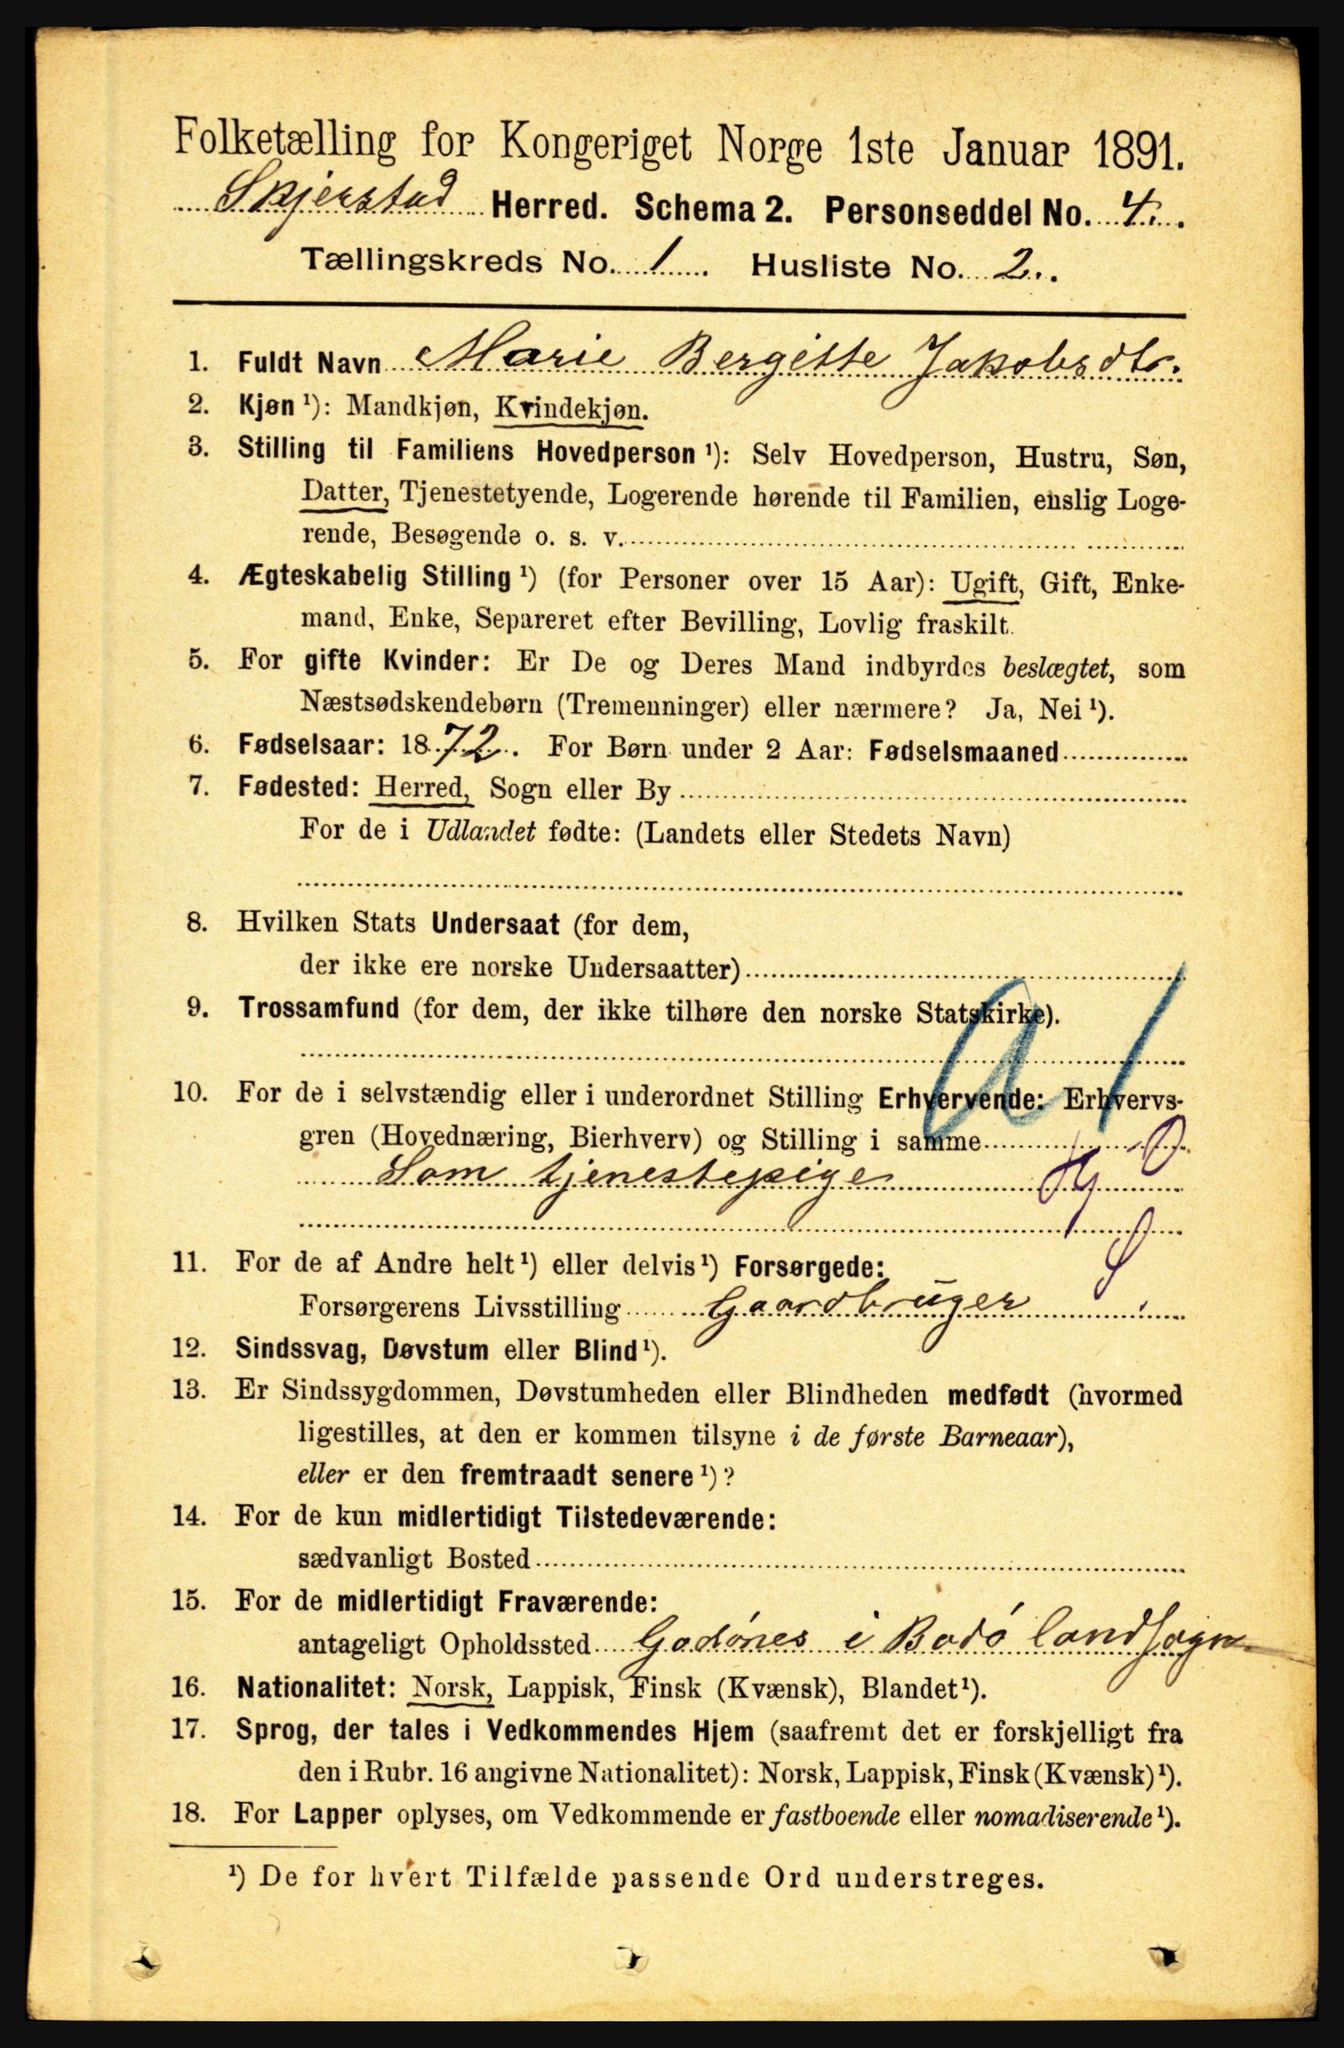 Folketælling for Kongeriget Norge 1ste Januar 1891.
Skjerstad Herred. Schema 2. Personseddel No. 4.
Tællingskreds No. 1 Husliste No. 2.
1. Fuldt Navn Marie Bergitte Jakobsdtr.
2. Kjøn ¹): Mandkjøn, Kvindekjøn.
3. Stilling til Familiens Hovedperson ¹): Selv Hovedperson, Hustru, Søn,
Datter, Tjenestetyende, Logerende hørende til Familien, enslig Loge-
rende, Besøgende o. s. v.
4. Ægteskabelig Stilling ¹) (for Personer over 15 Aar): Ugift, Gift, Enke-
mand, Enke, Separeret efter Bevilling, Lovlig fraskilt.
5. For gifte Kvinder: Er De og Deres Mand indbyrdes beslægtet, som
Næstsødskendebørn (Tremenninger) eller nærmere? Ja, Nei ¹).
6. Fødselsaar: 1872. For Børn under 2 Aar: Fødselsmaaned
7. Fødested: Herred, Sogn eller By
For de i Udlandet fødte: (Landets eller Stedets Navn)
8. Hvilken Stats Undersaat (for dem,
der ikke ere norske Undersaatter)
9. Trossamfund (for dem, der ikke tilhøre den norske Statskirke).
10. For de i selvstændig eller i underordnet Stilling Erhvervende: Erhvervs-
gren (Hovednæring, Bierhverv) og Stilling i samme
Som tjenestepige
11. For de af Andre helt ¹) eller delvis ¹) Forsørgede:
Forsørgerens Livsstilling Gaardbruger
12. Sindssvag, Døvstum eller Blind ¹).
13. Er Sindssygdommen, Døvstumheden eller Blindheden medfødt (hvormed
ligestilles, at den er kommen tilsyne i de første Barneaar),
eller er den fremtraadt senere ¹)?
14. For de kun midlertidigt Tilstedeværende:
sædvanligt Bosted
15. For de midlertidigt Fraværende:
antageligt Opholdssted Godønes i Bodø landsogn
16. Nationalitet: Norsk, Lappisk, Finsk (Kvænsk), Blandet ¹).
17. Sprog, der tales i Vedkommendes Hjem (saafremt det er forskjelligt fra
den i Rubr. 16 angivne Nationalitet): Norsk, Lappisk, Finsk (Kvænsk) ¹).
18. For Lapper oplyses, om Vedkommende er fastboende eller nomadiserende ¹).
¹) De for hvert Tilfælde passende Ord understreges.